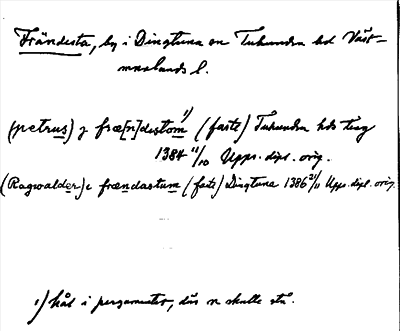 Frändesta, by i Dingtuna sn Tuhundra hd Väst-
manlands l.
(petrus) j fræ[n]distom 1) (faste) Tuhundra hds ting
1384 11/10 Upps. dipl. orig.
(Ragwalder) c frændastum (faste) Dingtuna 1386 21/11 Upps. dipl. orig.
1) hål i pergamentet, där n skulle stå.